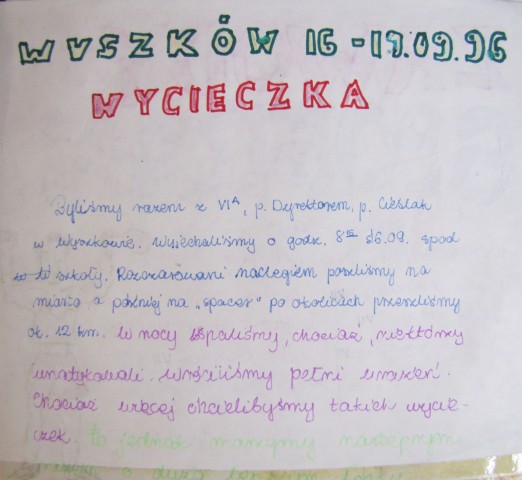 WYSZKÓW 16-17.09.96
WYCIECZKA
Byliśmy razem z VIA, p. Dyrektorem, p. Cieślak
w Wyszkowie. Wyjechaliśmy o godz. 8 16.09. spod
tej szkoły. Rozczarowani noclegiem poszliśmy na
miasto a później na "spacer" po okolicach przeszliśmy
ok. 12 km. W nocy spaliśmy, chociaż niektórzy
unatykowali. Wróciliśmy pełni wrażeń.
Chociaż więcej chcielibyśmy takich wycie-
czek. to jednak marzymy następnym
razem o